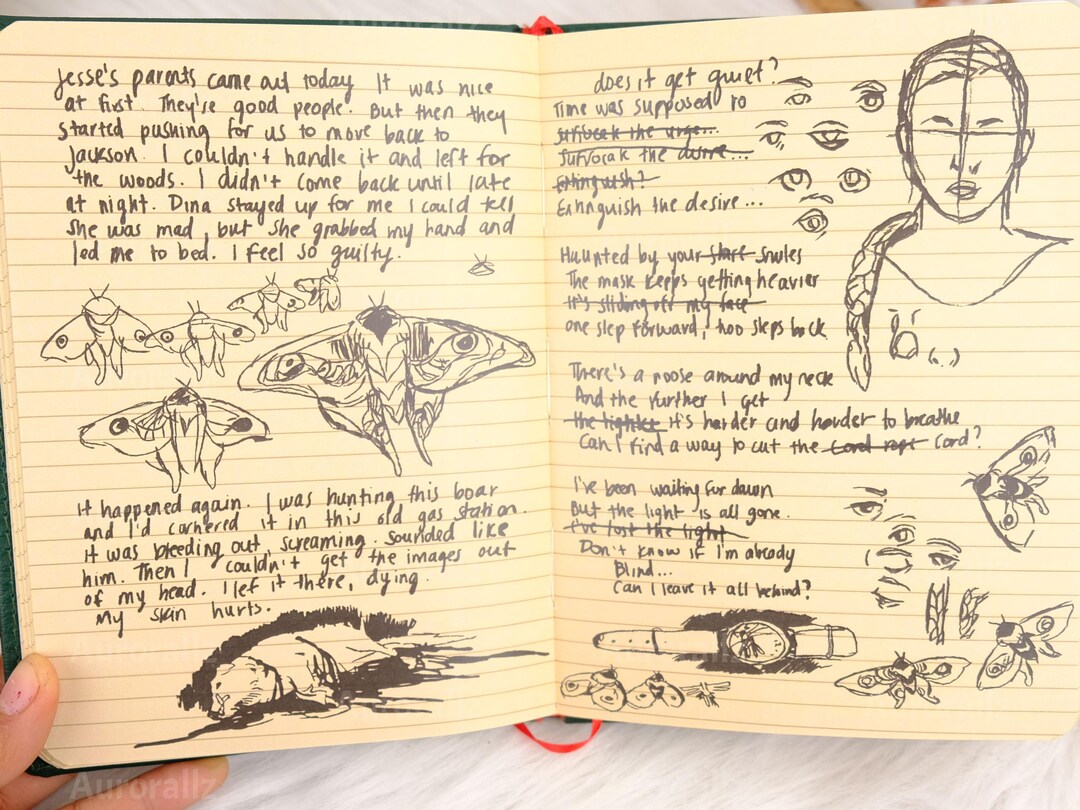 Jesse's parents came out today It was nice
at first. They're good people. But then they
started pushing for us to move back to
Jackson. I couldn't handle it and left for
the woods. I didn't come back until late
at night. Dina stayed up for me I could tell
she was mad, but she grabbed my hand and
led me to bed. I feel so guilty.
It happened again. I was hunting this boar
and I'd cornered it in this old gas station.
It was bleeding out, screaming. Sounded like
him. Then I couldn't get the images out
of my head. I left it there, dying.
My skin hurts.
does it get quiet?
Time was supposed to
suffocate the urge...
suffocate the desire...
extinguish?
Extinguish the desire...
Haunted by your stare smiles
The mask keeps getting heavier
It's sliding off my face
one step forward, two steps back
There's a noose around my neck
And the further I get
the tighter it's harder and harder to breathe
Can I find a way to cut the cord rope cord?
I've been waiting for dawn
But the light is all gone.
I've lost the light
Don't know if I'm already
Blind...
Can I leave it all behind?
Aurorallz
Aurorallz